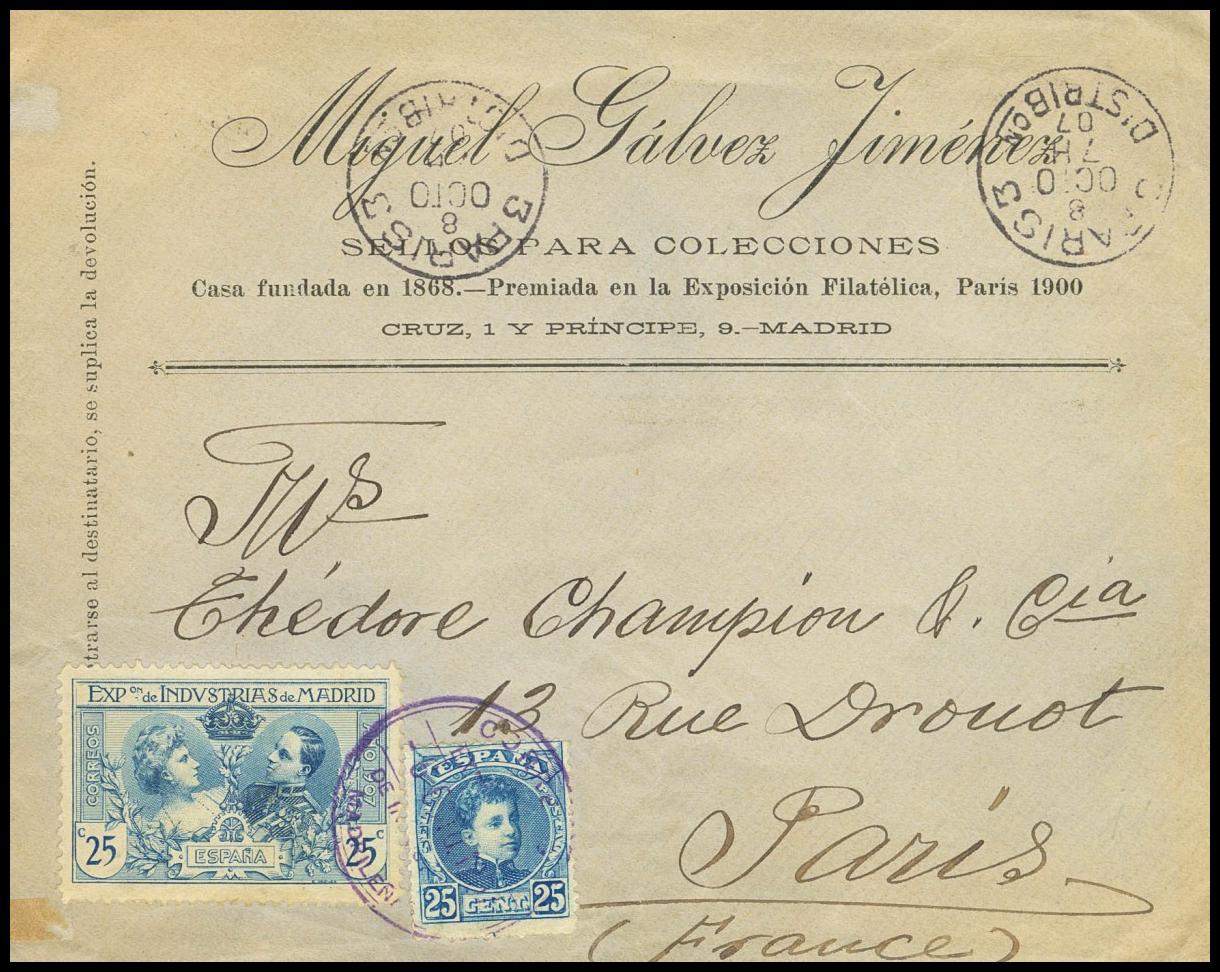 Miguel Gálvez Jiménez
SELLOS PARA COLECCIONES
Casa fundada en 1868.—Premiada en la Exposición Filatélica, París 1900
CRUZ, 1 Y PRÍNCIPE, 9.—MADRID
PARIS 3
DISTRIBON
8
OCTO
07
PARIS 3
DISTRIBON
8
OCTO
7H
07
trarse al destinatario, se suplica la devolución.
Ms
Thédore Champion &. Cia
13 Rue Drouot
París
(France)
EXPON. de INDVSTRIAS de MADRID
CORREOS
1907
C 25
ESPAÑA
25 C
ESPAÑA
25 CENT. 25